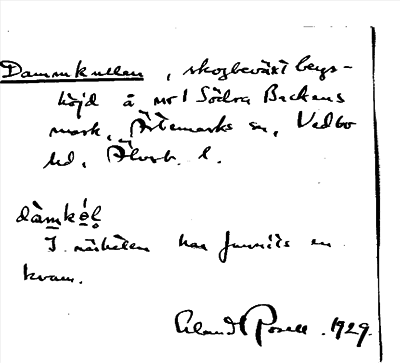 Dammkullen, skogbeväxt bergs-
höjd å nr 1 Södra Backens
mark, Ärtemarks sn, Vedbo
hd, Älvsb. l.
dàmkó̩l̥
I närheten har funnits en
kvarn.
Erland Rosell. 1929.